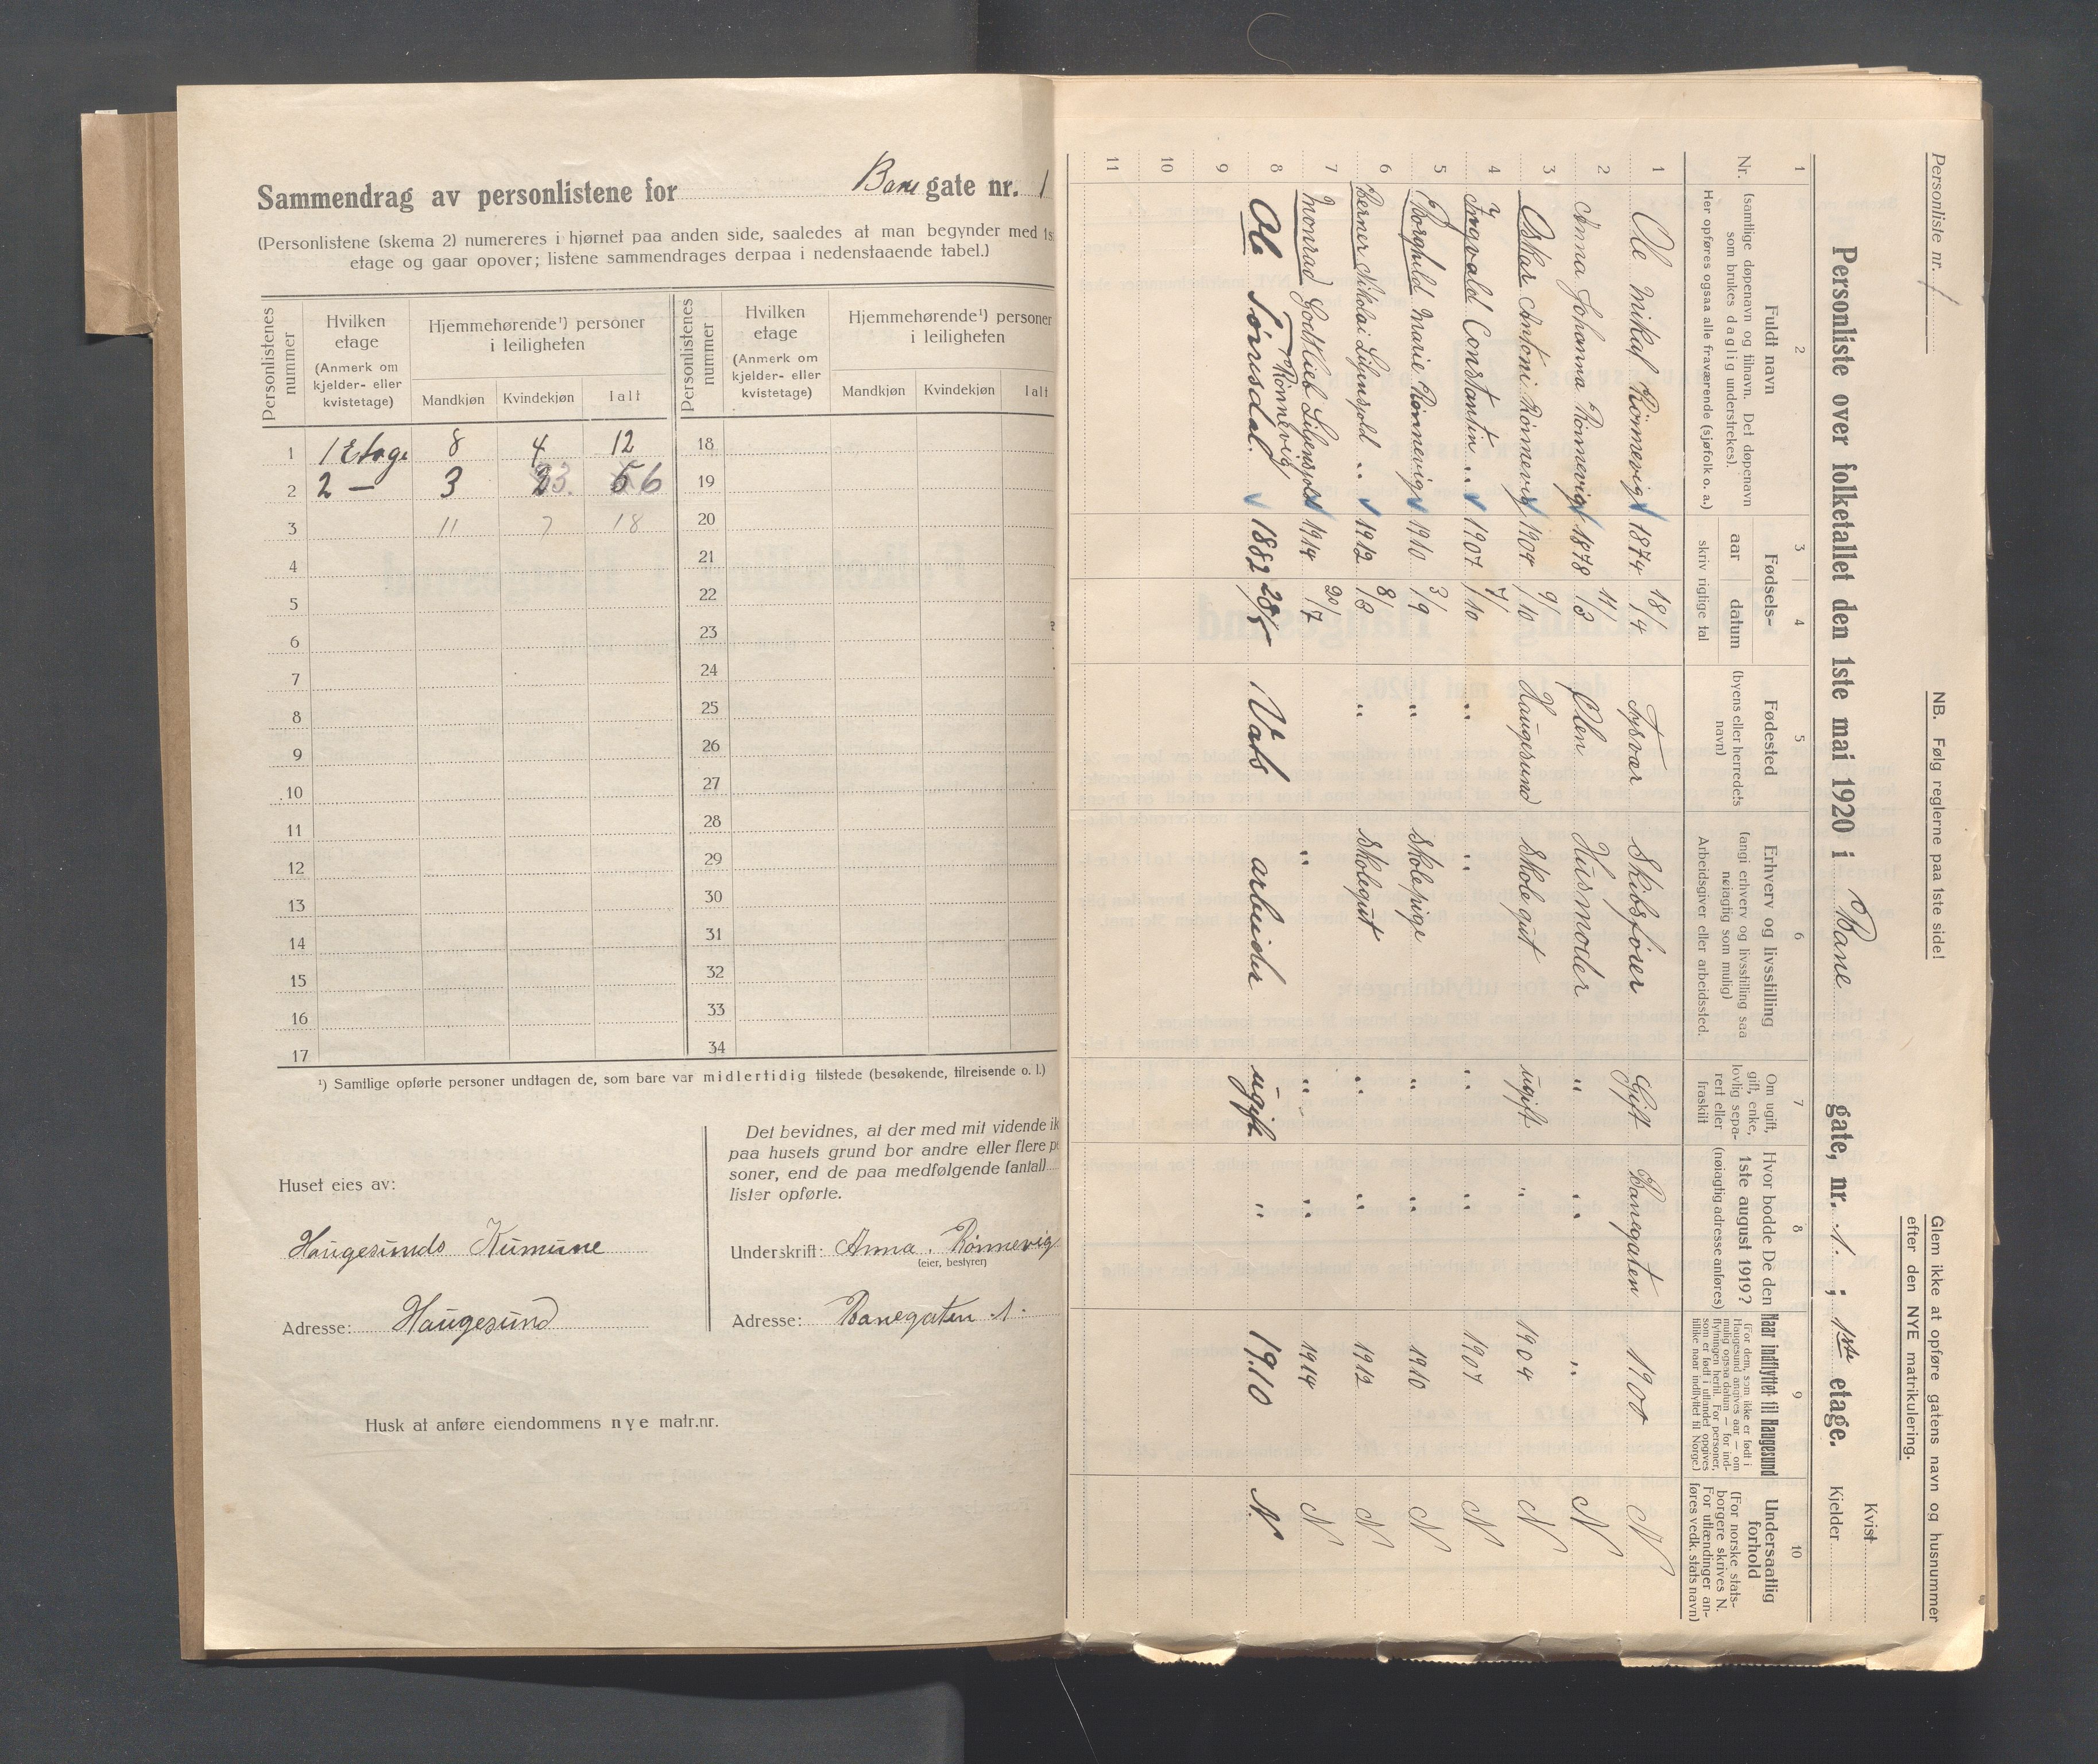 Sammendrag av personlistene for Bane gate nr. 1
(Personlistene (skema 2) numereres i hjørnet paa anden side, saaledes at man begynder med 1s
etage og gaar opover; listene sammendrages derpaa i nedenstaaende tabel.)
Personlistenes nummer | Hvilken etage (Anmerk om kjelder- eller kvistetage) | Hjemmehørende¹) personer i leiligheten | Mandkjøn | Kvindekjøn | Ialt
Personlistenes nummer | Hvilken etage (Anmerk om kjelder- eller kvistetage) | Hjemmehørende¹) personer i leiligheten | Mandkjøn | Kvindekjøn | Ialt
1 1 Etage 8 4 12 18
2 2 — 3 3. 6 19
3 11 7 18 20
4 21
5 22
6 23
7 24
8 25
9 26
10 27
11 28
12 29
13 30
14 31
15 32
16 33
17 34
¹) Samtlige opførte personer undtagen de, som bare var midlertidig tilstede (besøkende, tilreisende o. l.)
Huset eies av:
Haugesunds Kumune
Adresse: Haugesund
Det bevidnes, at der med mit vidende ik
paa husets grund bor andre eller flere pe
soner, end de paa medfølgende (antall)
lister opførte.
Underskrift: Anna. Rønnevig
(eier, bestyrer)
Adresse: Banegaten 1.
Husk at anføre eiendommens nye matr.nr.
Personliste nr. 1
NB. Følg reglerne paa 1ste side!
Glem ikke at opføre gatens navn og husnummer
efter den NYE matrikulering.
Personliste over folketallet den 1ste mai 1920 i Bane gate, nr. 1. ; 1ste etage.
Kvist
Kjelder
1 2 3 4 5 6 7 8 9 10
Nr.
Fuldt navn
(samtlige døpenavn og tilnavn. Det døpenavn
som brukes daglig understrekes).
Her opføres ogsaa alle fraværende (sjøfolk o. a.)
Fødsels-
aar | datum
skriv riglige tal
Fødested
(byens eller herredets
navn)
Erhverv og livsstilling
(angi erhverv og livsstilling saa
nøiagtig som mulig)
Arbeidsgiver eller arbeidssted.
Om ugift,
gift, enke,
lovlig sepa-
rert eller
fraskilt
Hvor bodde De den
1ste august 1919?
(nøiagtig adresse anføres)
Naar indflyttet til Haugesund
(For dem, som ikke er født i
Haugesund angives aar — om
mulig ogsaa datum — for ind-
flytningen hertil. For personer,
som er født i utlandet opgives
tillike naar indflyttet til Norge.)
Undersaatlig
forhold
(For norske stats-
borgere skrives N.
For utlændinger an-
føres vedk. stats navn)
1 Ole Mikal Rönnevig 1874 18/4 Tysvær Skibsförer Gift Banegaten 1900 N
2 Anna Johanna Rönnevig 1878 11/3 Ølen Husmoder " " " N
3 Oskar Antoni Rønnevig 1904 9/10 Haugesund Skolegut ugift " 1904 N
4 Ingvald Constantin " 1907 7/10 " " " " 1907 N
5 Borghild Marie Rönnevig 1910 3/9 " Skolepige " " 1910 N
6 Berner Nikolai Liljensjold " 1912 8/8 " Skolegut " " 1912 N
7 Monrad Godtlieb Liljensjold Rönnevig 1914 20/7 " " " 1914 N
8 Ole Sörensdal. 1882 28/5 Vats arbeider ugift " 1910 N.
9
10
11